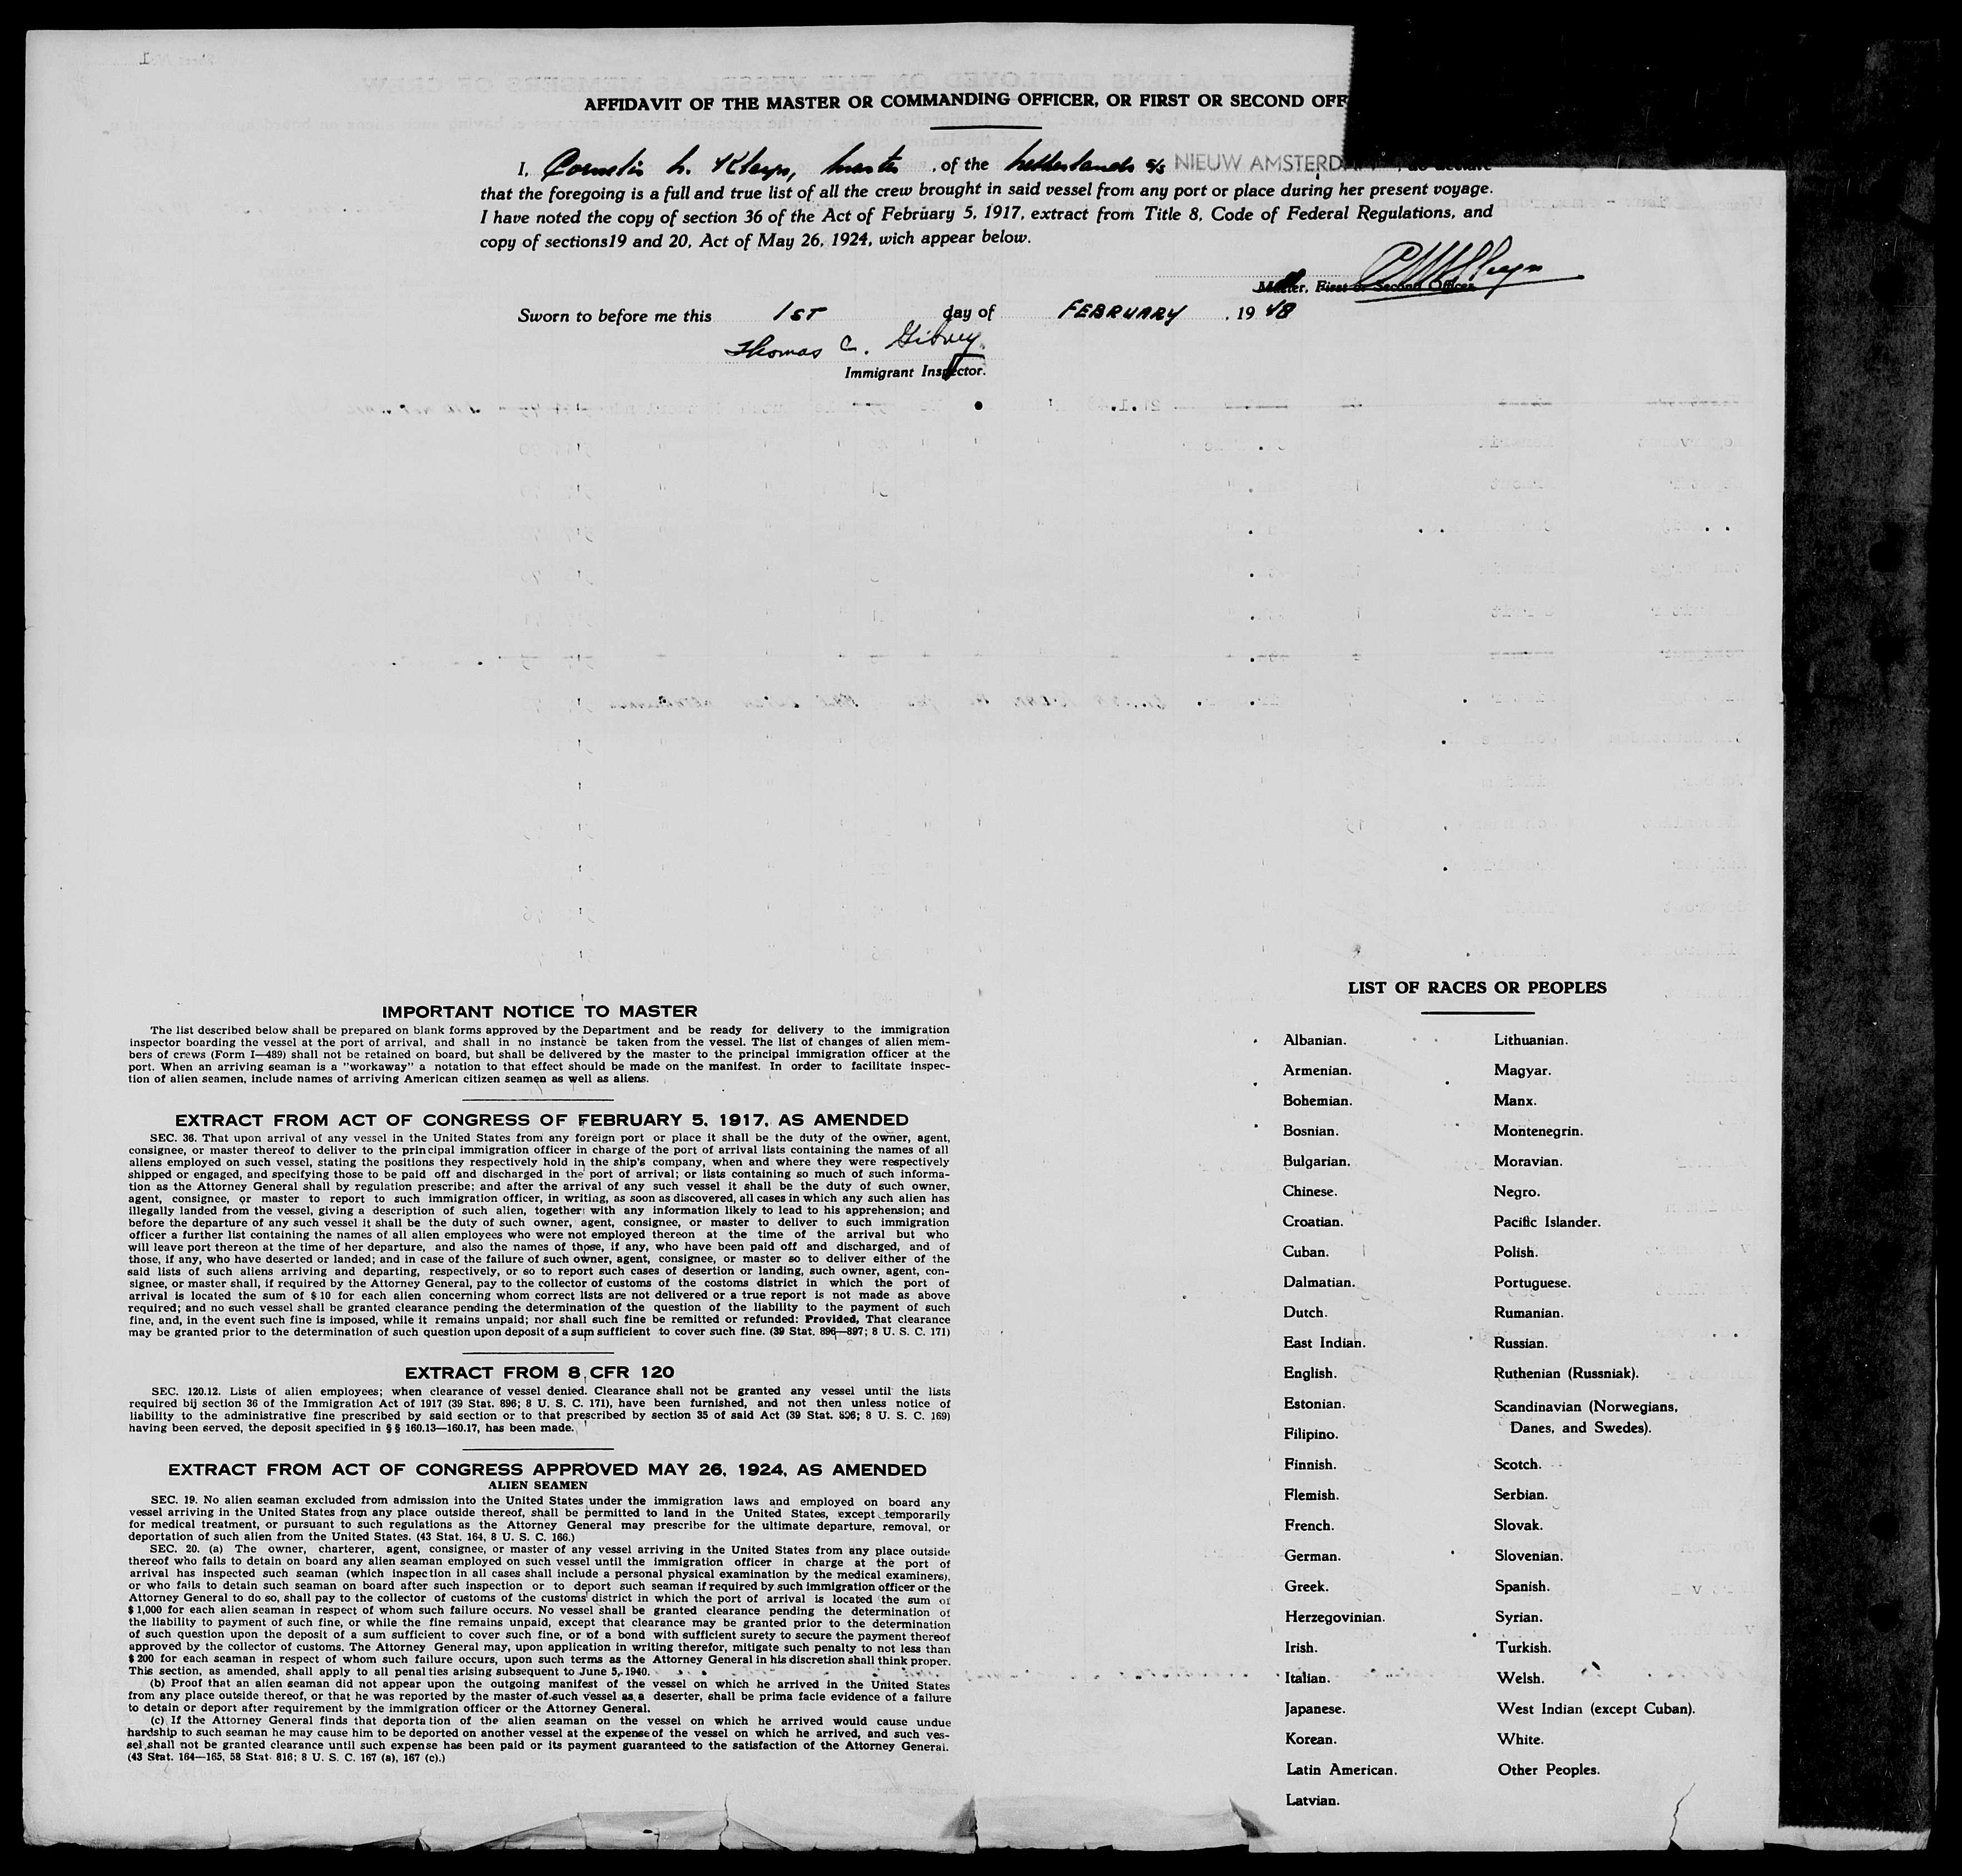 AFFIDAVIT OF THE MASTER OR COMMANDING OFFICER, OR FIRST OR SECOND OFF
I, Cornelis h. Kleyn, master, of the netherlands s/s NIEUW AMSTERD
that the foregoing is a full and true list of all the crew brought in said vessel from any port or place during her present voyage.
I have noted the copy of section 36 of the Act of February 5, 1917, extract from Title 8, Code of Federal Regulations, and
copy of sections19 and 20, Act of May 26, 1924, wich appear below.
Master, First or Second Officer.
Sworn to before me this 1ST day of FEBRUARY, 19 48
Thomas C. Gibney
Immigrant Inspector.
IMPORTANT NOTICE TO MASTER
The list described below shall be prepared on blank forms approved by the Department and be ready for delivery to the immigration
inspector boarding the vessel at the port of arrival, and shall in no instance be taken from the vessel. The list of changes of alien mem-
bers of crews (Form I—489) shall not be retained on board, but shall be delivered by the master to the principal immigration officer at the
port. When an arriving seaman is a "workaway" a notation to that effect should be made on the manifest. In order to facilitate inspec-
tion of alien seamen, include names of arriving American citizen seamen as well as aliens.
EXTRACT FROM ACT OF CONGRESS OF FEBRUARY 5, 1917, AS AMENDED
SEC. 36. That upon arrival of any vessel in the United States from any foreign port or place it shall be the duty of the owner, agent,
consignee, or master thereof to deliver to the principal immigration officer in charge of the port of arrival lists containing the names of all
aliens employed on such vessel, stating the positions they respectively hold in the ship's company, when and where they were respectively
shipped or engaged, and specifying those to be paid off and discharged in the port of arrival; or lists containing so much of such informa-
tion as the Attorney General shall by regulation prescribe; and after the arrival of any such vessel it shall be the duty of such owner,
agent, consignee, or master to report to such immigration officer, in writing, as soon as discovered, all cases in which any such alien has
illegally landed from the vessel, giving a description of such alien, together with any information likely to lead to his apprehension; and
before the departure of any such vessel it shall be the duty of such owner, agent, consignee, or master to deliver to such immigration
officer a further list containing the names of all alien employees who were not employed thereon at the time of the arrival but who
will leave port thereon at the time of her departure, and also the names of those, if any, who have been paid off and discharged, and of
those, if any, who have deserted or landed; and in case of the failure of such owner, agent, consignee, or master so to deliver either of the
said lists of such aliens arriving and departing, respectively, or so to report such cases of desertion or landing, such owner, agent, con-
signee, or master shall, if required by the Attorney General, pay to the collector of customs of the costoms district in which the port of
arrival is located the sum of $10 for each alien concerning whom correct lists are not delivered or a true report is not made as above
required; and no such vessel shall be granted clearance pending the determination of the question of the liability to the payment of such
fine, and, in the event such fine is imposed, while it remains unpaid; nor shall such fine be remitted or refunded: Provided, That clearance
may be granted prior to the determination of such question upon deposit of a sum sufficient to cover such fine. (39 Stat. 896—897; 8 U. S. C. 171)
EXTRACT FROM 8 CFR 120
SEC. 120.12. Lists of alien employees; when clearance of vessel denied. Clearance shall not be granted any vessel until the lists
required bij section 36 of the Immigration Act of 1917 (39 Stat. 896; 8 U. S. C. 171), have been furnished, and not then unless notice of
liability to the administrative fine prescribed by said section or to that prescribed by section 35 of said Act (39 Stat. 896; 8 U. S. C. 169)
having been served, the deposit specified in §§ 160.13—160.17, has been made.
EXTRACT FROM ACT OF CONGRESS APPROVED MAY 26, 1924, AS AMENDED
ALIEN SEAMEN
SEC. 19. No alien seaman excluded from admission into the United States under the immigration laws and employed on board any
vessel arriving in the United States from any place outside thereof, shall be permitted to land in the United States, except temporarily
for medical treatment, or pursuant to such regulations as the Attorney General may prescribe for the ultimate departure, removal, or
deportation of such alien from the United States. (43 Stat. 164, 8 U. S. C. 166.)
SEC. 20. (a) The owner, charterer, agent, consignee, or master of any vessel arriving in the United States from any place outside
thereof who fails to detain on board any alien seaman employed on such vessel until the immigration officer in charge at the port of
arrival has inspected such seaman (which inspection in all cases shall include a personal physical examination by the medical examiners),
or who fails to detain such seaman on board after such inspection or to deport such seaman if required by such immigration officer or the
Attorney General to do so, shall pay to the collector of customs of the customs district in which the port of arrival is located the sum of
$1,000 for each alien seaman in respect of whom such failure occurs. No vessel shall be granted clearance pending the determination of
the liability to payment of such fine, or while the fine remains unpaid, except that clearance may be granted prior to the determination
of such question upon the deposit of a sum sufficient to cover such fine, or of a bond with sufficient surety to secure the payment thereof
approved by the collector of customs. The Attorney General may, upon application in writing therefor, mitigate such penalty to not less than
$200 for each seaman in respect of whom such failure occurs, upon such terms as the Attorney General in his discretion shall think proper.
This section, as amended, shall apply to all penalties arising subsequent to June 5, 1940.
(b) Proof that an alien seaman did not appear upon the outgoing manifest of the vessel on which he arrived in the United States
from any place outside thereof, or that he was reported by the master of such vessel as a deserter, shall be prima facie evidence of a failure
to detain or deport after requirement by the immigration officer or the Attorney General.
(c) If the Attorney General finds that deportation of the alien seaman on the vessel on which he arrived would cause undue
hardship to such seaman he may cause him to be deported on another vessel at the expense of the vessel on which he arrived, and such ves-
sel shall not be granted clearance until such expense has been paid or its payment guaranteed to the satisfaction of the Attorney General.
(43 Stat. 164—165, 58 Stat. 816; 8 U. S. C. 167 (a), 167 (c).)
LIST OF RACES OR PEOPLES
Albanian.
Armenian.
Bohemian.
Bosnian.
Bulgarian.
Chinese.
Croatian.
Cuban.
Dalmatian.
Dutch.
East Indian.
English.
Estonian.
Filipino.
Finnish.
Flemish.
French.
German.
Greek.
Herzegovinian.
Irish.
Italian.
Japanese.
Korean.
Latin American.
Latvian.
Lithuanian.
Magyar.
Manx.
Montenegrin.
Moravian.
Negro.
Pacific Islander.
Polish.
Portuguese.
Rumanian.
Russian.
Ruthenian (Russniak).
Scandinavian (Norwegians,
Danes, and Swedes).
Scotch.
Serbian.
Slovak.
Slovenian.
Spanish.
Syrian.
Turkish.
Welsh.
West Indian (except Cuban).
White.
Other Peoples.